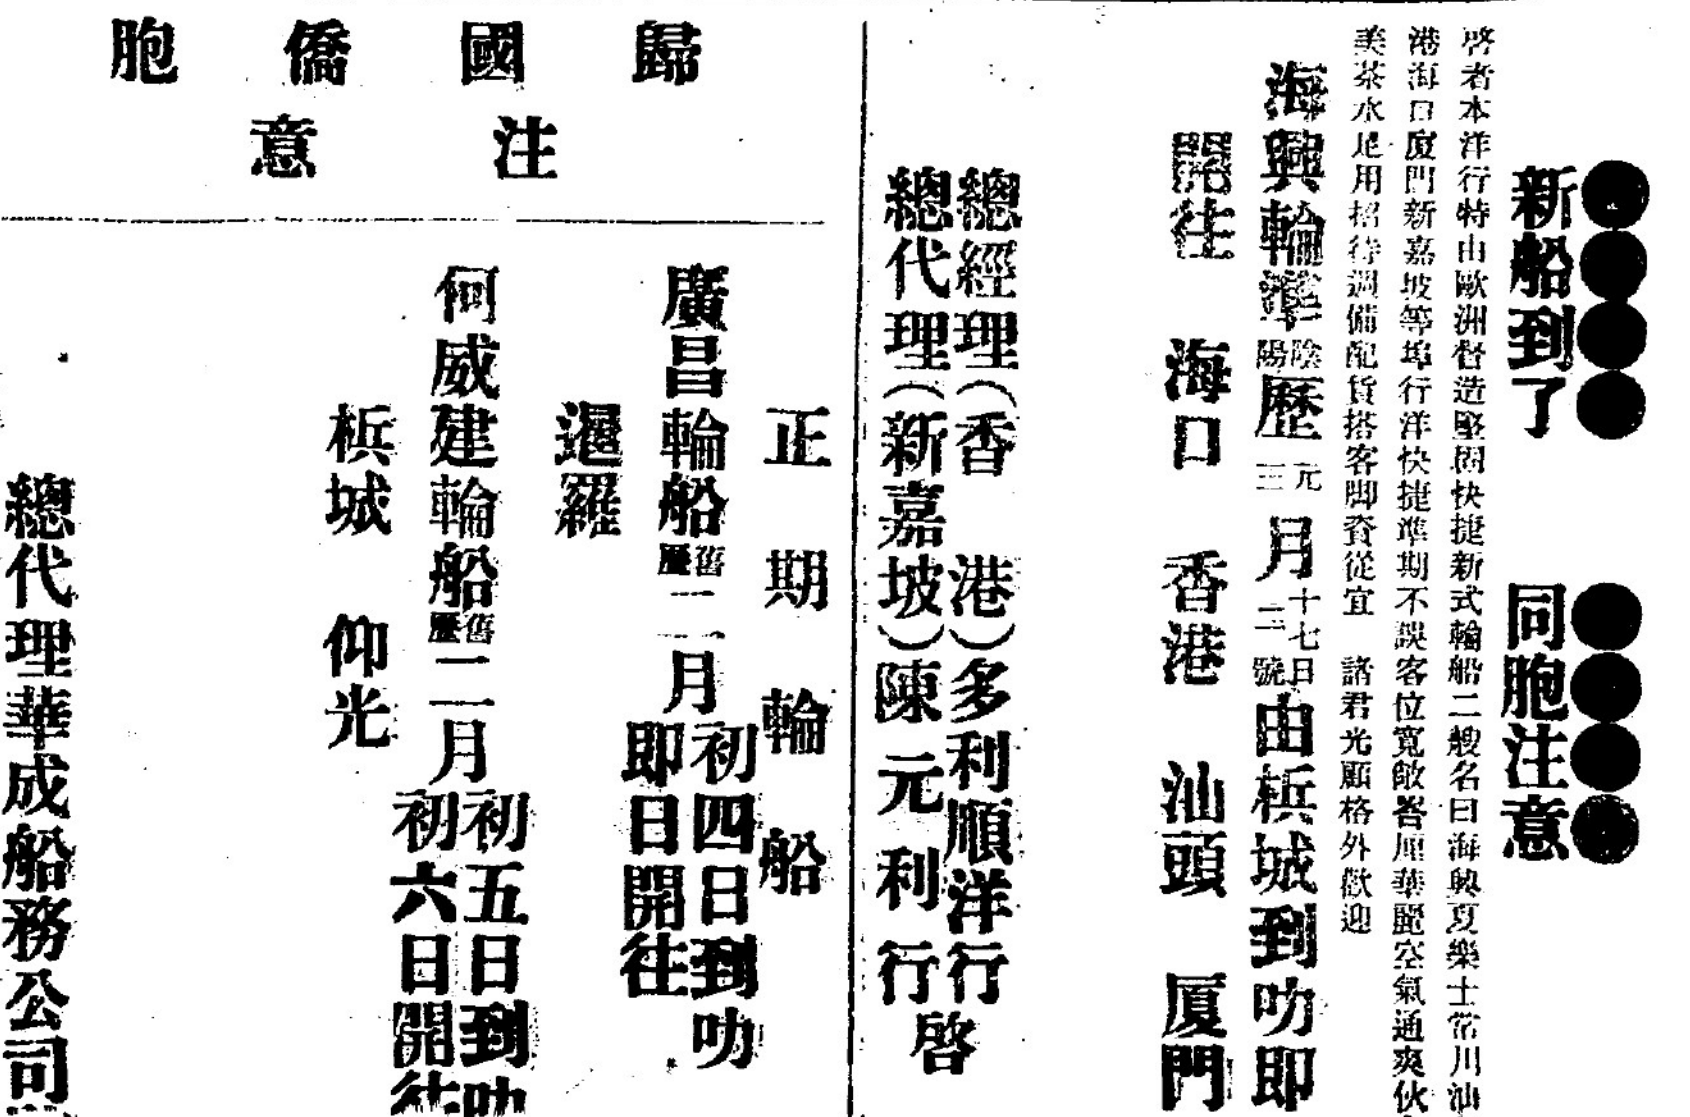 新船到了 同胞注意
啓者本洋行特由歐洲督造堅固快捷新式輪船二艘名曰海興夏樂士常川汕
港海口廈門新嘉坡等埠行洋快捷準期不誤客位寬敞 華麗空氣通爽伙
美茶水足用招待週備配貨搭客脚資從宜 諸君光顧格外歡迎
海興輪準陰陽歷元三月十七二日號由梹城到叻即
開往 海口 香港 汕頭 厦門
總經理(香港)多利順洋行
總代理(新嘉坡)陳元利行
啓
歸國僑胞
注意
正期輪船
廣昌輪船舊歷二月初四日到叻即日開往
暹羅
何威建輪船舊歷二月初五日到叻初六日開往
梹城 仰光
總代理華成船務公司